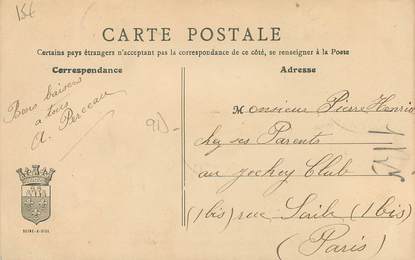 15€
CARTE POSTALE
Certains pays étrangers n'acceptant pas la correspondance de ce côté, se renseigner à la Poste
Correspondance
Adresse
Bons baisers
a tous
A. Perceau
Monsieur Pierre Henri
chez ses Parents
au Jockey Club
(1 bis) rue Scribe (1 bis)
(Paris)